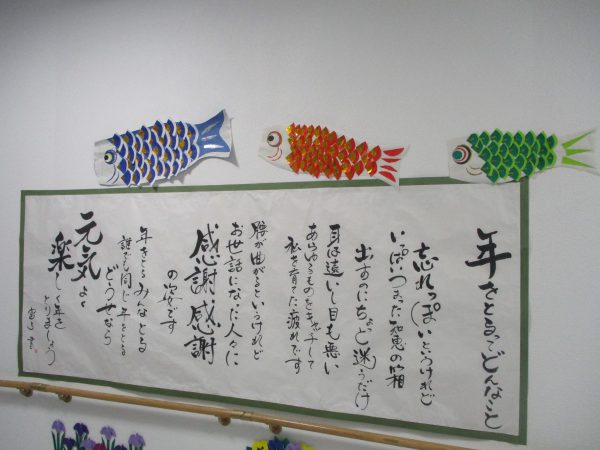 年をとるってどんなこと
忘れっぽいというけれど
いっぱいつまった知恵の箱
出すのにちょっと迷うだけ
耳は遠いし目も悪い
あらゆるものをキャッチして
私を育てた疲れです
腰が曲がるというけれど
お世話になった人々に
感謝感謝
の姿です
年をとるみなとる
誰でも同じ年をとる
どうせなら
元気よく
楽しく年を
とりましょう
書